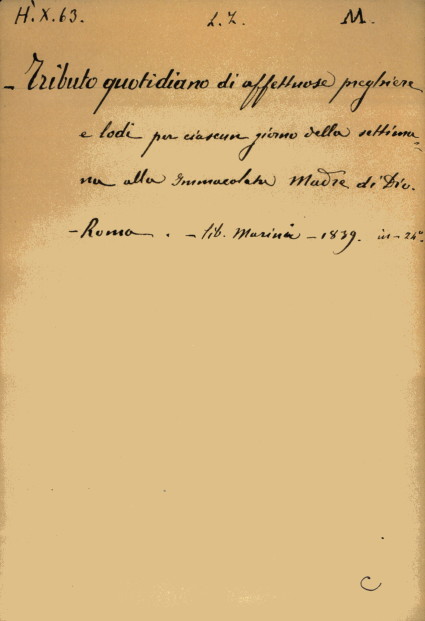 H.X.63. L.Z. M.
- Tributo quotidiano di affettuose preghiere
e lodi per ciascun giorno della settima=
na alla Immacolata Madre di Dio.
- Roma . - Tib. Marini - 1839. in - 24°.
C